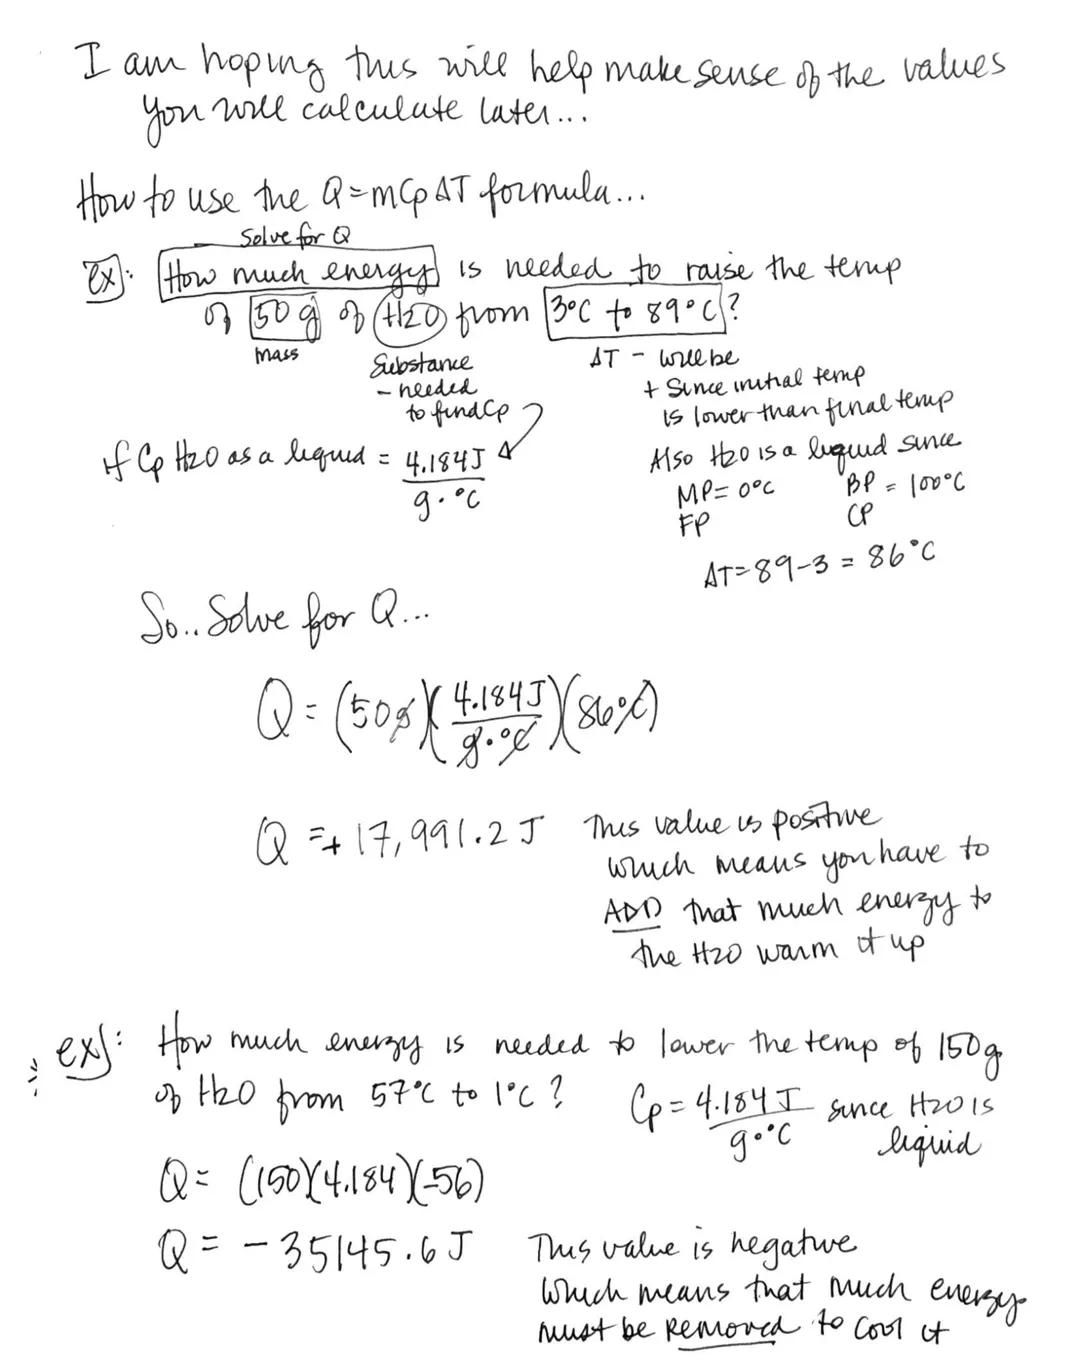 I am hoping this will help make sense of the values
you will calculate later...
How to use the Q=mCpΔT formula...
Solve for Q
ex): How much energy is needed to raise the temp
of 50 g of H2O from 3°C to 89°C?
mass
Substance
- needed
to find Cp
ΔT - will be
+ since initial temp
is lower than final temp
Also H2O is a liquid since
MP= 0°C BP = 100°C
FP CP
ΔT=89-3 = 86°C
if Cp H2O as a liquid = 4.184J
g·°C
So.. Solve for Q...
Q = (50g)(4.184J/g·°C)(86°C)
Q =+ 17,991.2 J
This value is positive
which means you have to
ADD that much energy to
the H2O warm it up
ex): How much energy is needed to lower the temp of 150g
of H2O from 57°C to 1°C?
Cp= 4.184J/g·°C since H2O is
liquid
Q= (150)(4.184)(-56)
Q = - 35145.6 J
This value is negative
which means that much energy
must be removed to cool it